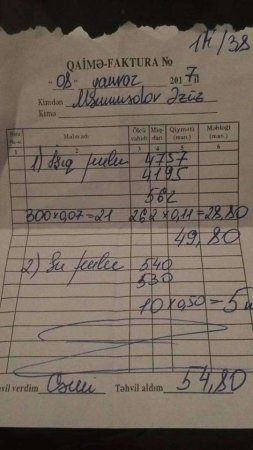 14/38
QAİMƏ-FAKTURA №
"08" yanvar 2017 il
Kimdən
Kimə
Sıra №-si Malın adı Ölçü vahidi Miqdarı Qiyməti (man.) Məbləği (man.)
1 2 3 4 5 6
1) İşıq pulu 4757
4195
562
300x0,07=21 262x0,11=28,80
49,80
2) Su pulu 540
530
10x0,50=5
Təhvil aldım 54,80